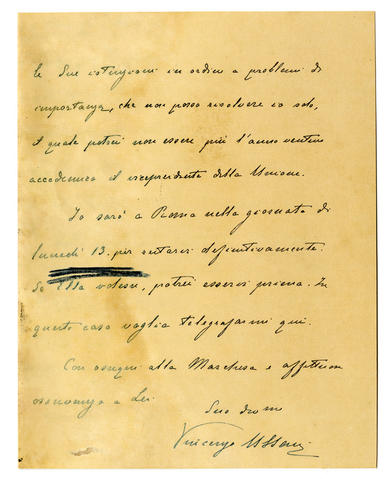 le Sue istruzioni in ordine a problemi di
importanza, che non posso risolvere io solo,
il quale potrei non essere più l'anno venturo
accademico il vicepresidente della Unione.
Io sarò a Roma nella giornata di
lunedì 13. per restarvi definitivamente.
Se Ella volesse, potrei esservi prima. In
questo caso voglia telegrafarmi qui.
Con ossequi alla Marchesa e affettuoso
ossequio a Lei
Suo dev.mo
Vincenzo Ussani